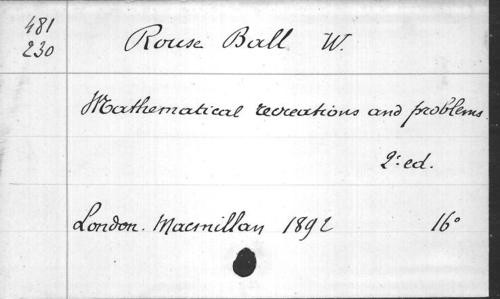 481
230
Rouse Ball W.
Mathematical recreations and problems.
2: ed.
London. Macmillan 1892 16°